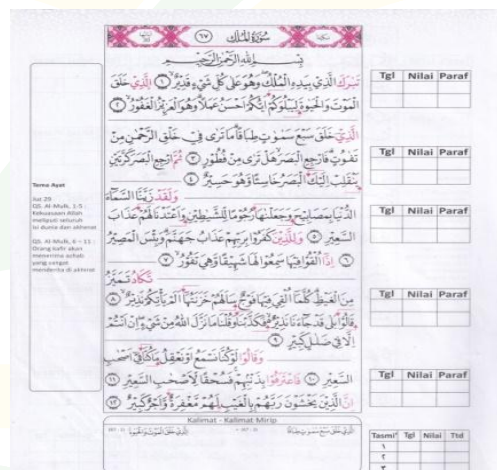 سُوْرَةُ الْمُلْكِ ٦٧
بِسْمِ اللهِ الرَّحْمٰنِ الرَّحِيْمِ
تَبٰرَكَ الَّذِيْ بِيَدِهِ الْمُلْكُ وَهُوَ عَلٰى كُلِّ شَيْءٍ قَدِيْرٌ ۙ ١ الَّذِيْ خَلَقَ
الْمَوْتَ وَالْحَيٰوةَ لِيَبْلُوَكُمْ اَيُّكُمْ اَحْسَنُ عَمَلًا وَهُوَ الْعَزِيْزُ الْغَفُوْرُ ۙ ٢
الَّذِيْ خَلَقَ سَبْعَ سَمٰوٰتٍ طِبَاقًا مَا تَرٰى فِيْ خَلْقِ الرَّحْمٰنِ مِنْ
تَفٰوُتٍ فَارْجِعِ الْبَصَرَ هَلْ تَرٰى مِنْ فُطُوْرٍ ٣ ثُمَّ ارْجِعِ الْبَصَرَ كَرَّتَيْنِ
يَنْقَلِبْ اِلَيْكَ الْبَصَرُ خَاسِئًا وَهُوَ حَسِيْرٌ ٤
وَلَقَدْ زَيَّنَّا السَّمَاءَ
الدُّنْيَا بِمَصَابِيْحَ وَجَعَلْنٰهَا رُجُوْمًا لِلشَّيٰطِيْنِ وَاَعْتَدْنَا لَهُمْ عَذَابَ
السَّعِيْرِ ٥ وَلِلَّذِيْنَ كَفَرُوْا بِرَبِّهِمْ عَذَابُ جَهَنَّمَ وَبِئْسَ الْمَصِيْرُ
٦ اِذَا اُلْقُوْا فِيْهَا سَمِعُوْا لَهَا شَهِيْقًا وَهِيَ تَفُوْرُ ۙ ٧
تَكَادُ تَمَيَّزُ
مِنَ الْغَيْظِ كُلَّمَا اُلْقِيَ فِيْهَا فَوْجٌ سَاَلَهُمْ خَزَنَتُهَا اَلَمْ يَأْتِكُمْ نَذِيْرٌ ٨
قَالُوْا بَلٰى قَدْ جَاءَنَا نَذِيْرٌ فَكَذَّبْنَا وَقُلْنَا مَا نَزَّلَ اللهُ مِنْ شَيْءٍ اِنْ اَنْتُمْ
اِلَّا فِيْ ضَلٰلٍ كَبِيْرٍ ٩
وَقَالُوْا لَوْ كُنَّا نَسْمَعُ اَوْ نَعْقِلُ مَا كُنَّا فِيْ اَصْحٰبِ
السَّعِيْرِ ١٠ فَاعْتَرَفُوْا بِذَنْبِهِمْ فَسُحْقًا لِاَصْحٰبِ السَّعِيْرِ ١١
اِنَّ الَّذِيْنَ يَخْشَوْنَ رَبَّهُمْ بِالْغَيْبِ لَهُمْ مَغْفِرَةٌ وَاَجْرٌ كَبِيْرٌ ١٢
Kalimat - Kalimat Mirip
Tema Ayat
Juz 29
QS. Al-Mulk, 1-5 :
Kekuasaan Allah
meliputi seluruh
isi dunia dan akhirat
QS. Al-Mulk, 6 - 11 :
Orang kafir akan
menerima azhab
yang sangat
menderita di akhirat
Tgl Nilai Paraf
Tgl Nilai Paraf
Tgl Nilai Paraf
Tgl Nilai Paraf
Tasmi' Tgl Nilai Ttd
١
٢
٣